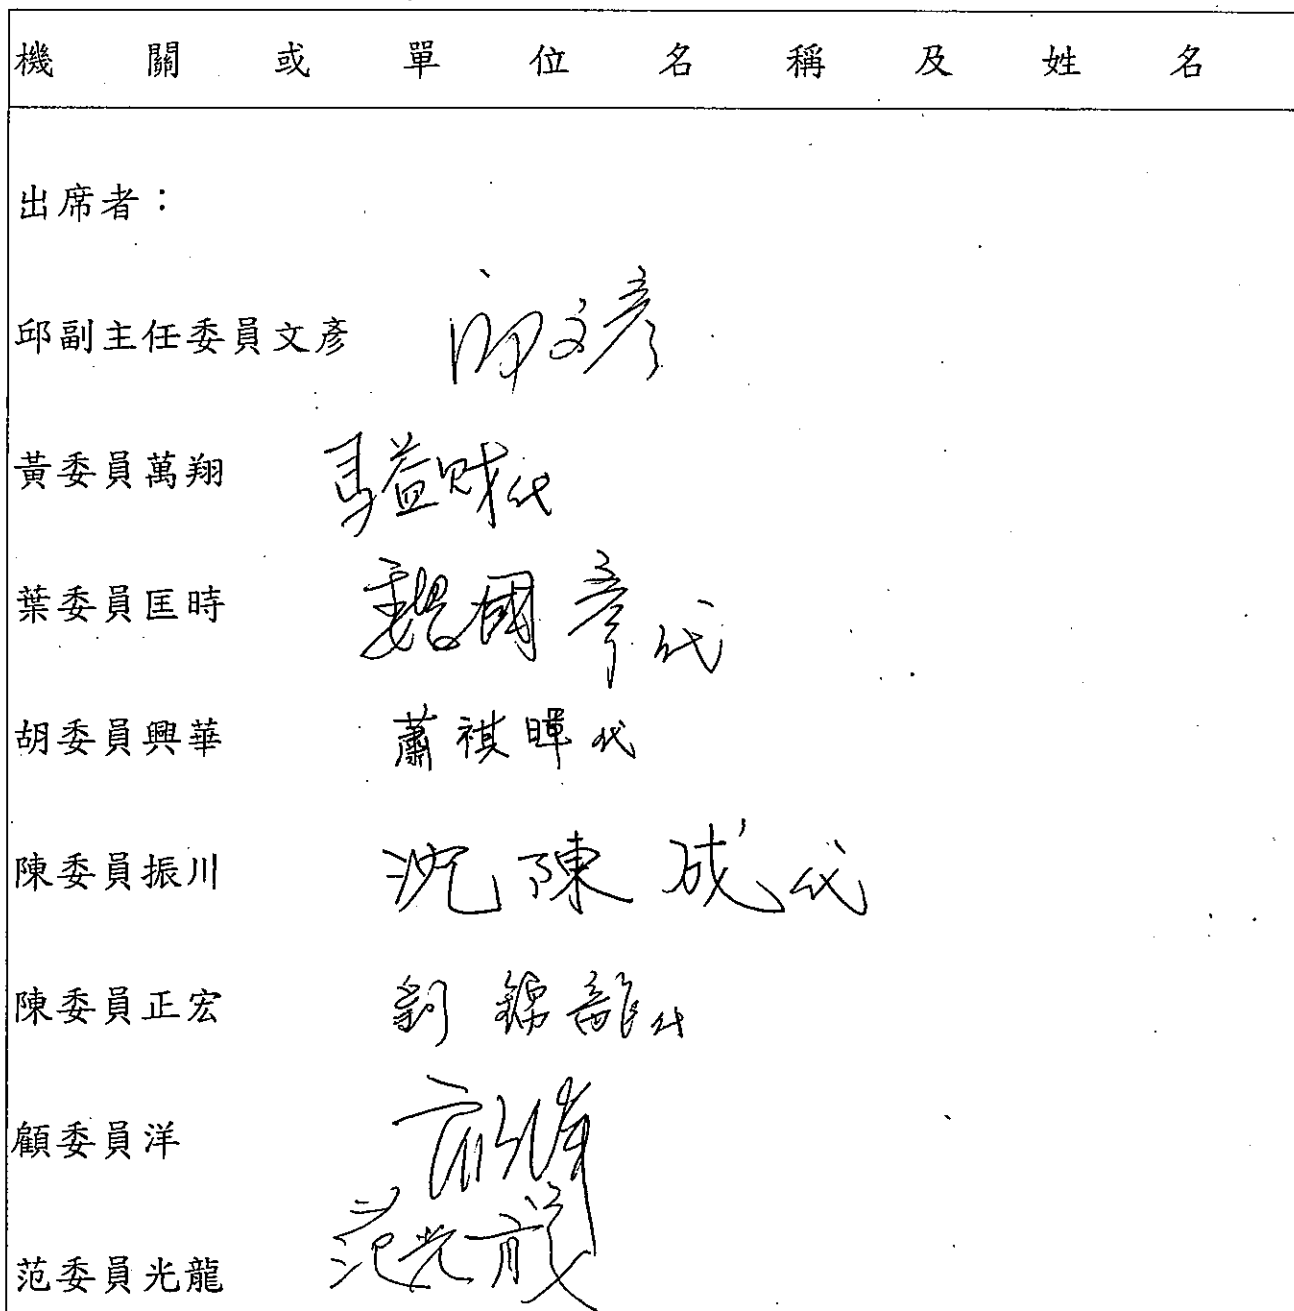 機關或單位名稱及姓名
出席者：
邱副主任委員文彥 邱文彥
黃委員萬翔 益財代
葉委員匡時 魏國彥代
胡委員興華 蕭祺暉代
陳委員振川 沈陳成代
陳委員正宏 劉錦龍代
顧委員洋 顧洋
范委員光龍 范光龍